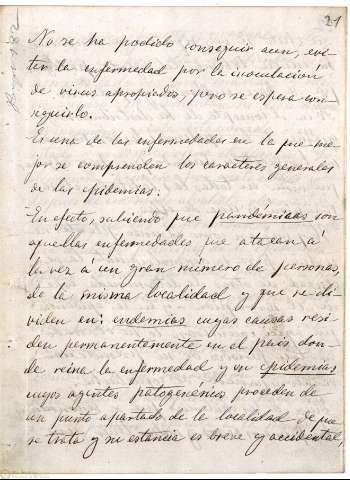 21
No se ha podido conseguir aun, evi-
tar la enfermedad por la inoculación
de virus apropiados, pero se espera con-
seguirlo.
Es una de las enfermedades en la que me-
jor se comprenden los caracteres generales
de las epidemias.
En efecto, sabiendo que pandémicas son
aquellas enfermedades que atacan á
la vez á un gran número de personas,
de la misma localidad y que se di-
viden en: endemias cuyas causas resi-
den permanentemente en el país don-
de reina la enfermedad y en epidemias
cuyos agentes patogénicos proceden de
un punto apartado de la localidad de que
se trata y su estancia es breve y accidental,